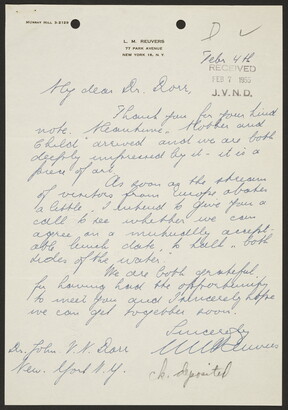 MURRAY HILL 5-2169
L. M. REUVERS
77 PARK AVENUE
NEW YORK 16, N. Y.
D ✓
Febr 4th
RECEIVED
FEB 7 1955
J. V. N. D.
My dear Dr. Dorr,
Thank you for your kind
note. Meantime "Mother and
Child" arrived and we are both
deeply impressed by it - it is a
piece of art.
As soon as the stream
of visitors from Europe abates
a little, I intend to give you a
call to see whether we can
agree on a mutually accept-
able lunch date, to talk "both
sides of the water".
We are both grateful
for having had the opportunity
to meet you and I sincerely hope
we can get together soon.
Sincerely
LMReuvers
Dr. John V. N. Dorr
New York N.Y.
ch. deposited